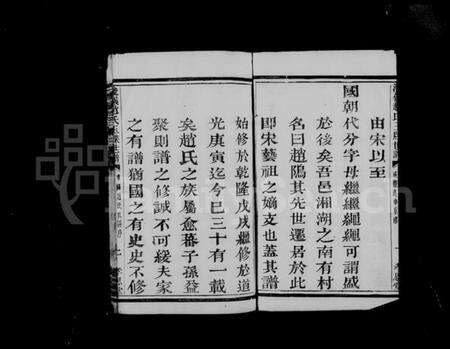 由宋以至
國朝代分字母繼繼繩繩可謂盛
於後矣吾邑湘湖之南有村
名曰趙隖其先世遷居於此
即宋藝祖之嫡支也蓋其譜
始修於乾隆戊戌繼修於道
光庚寅迄今巳三十有一載
矣趙氏之族屬愈蕃子孫益
聚則譜之修誠不可緩夫家
之有譜猶國之有史史不修